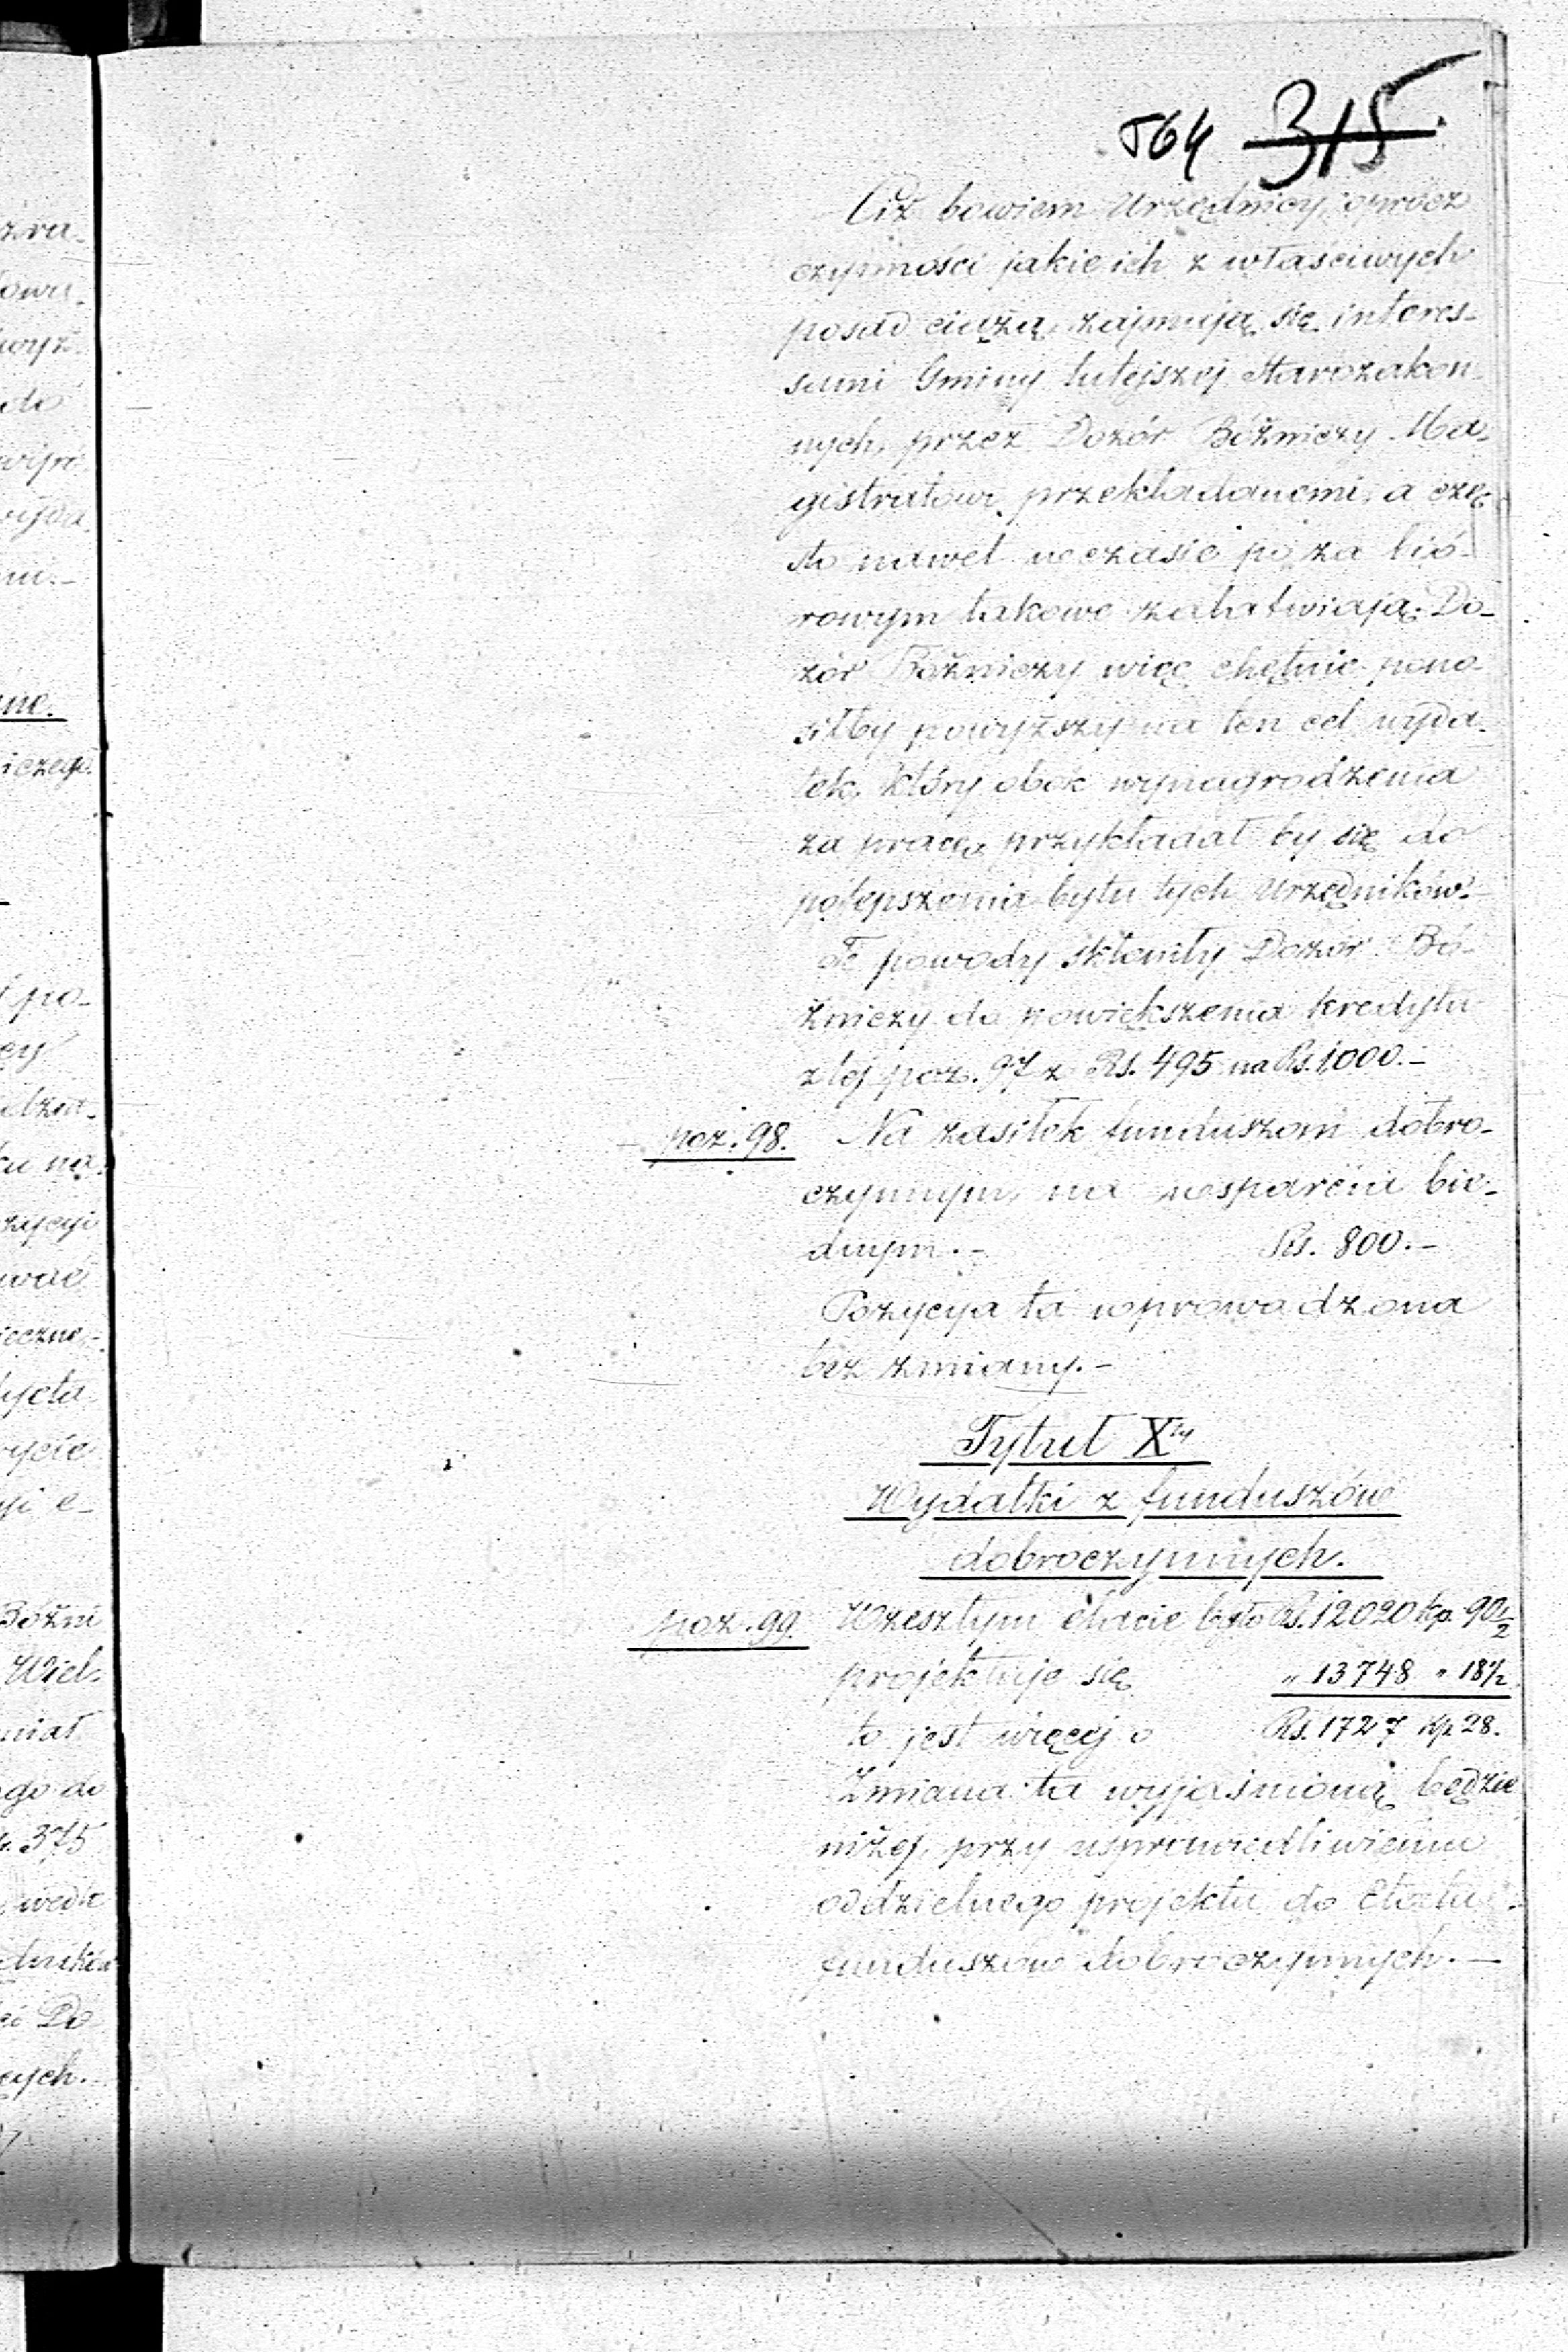 564 315.
Ciż bowiem Urzędnicy, oprócz
czynności jakie ich z właściwych
posad ciążą, zajmują się interes-
sami Gminy tutejszej Starozakon-
nych, przez Dozór Bóżniczy Ma-
gistratowi przekładanemi, a czę
sto nawet w czasie po za bió-
rowym takowe załatwiają. Do-
zór Bóżniczy więc chętnie pono-
siłby powyższy na ten cel wyda-
tek, który obok wynagrodzenia
za pracę, przykładał by się do
polepszenia bytu tych Urzędników.-
Te powody skłoniły Dozór Bó-
żniczy do powiększenia kredytu
z tej poz. 97 z Rs. 495 na Rs. 1,000.-
poz. 98. Na zasiłek funduszom dobro-
czynnym, na wsparcia bie-
dnym.- Rs. 800.-
Pozycya ta wprowadzona
bez zmiany.-
Tytuł X
Wydatki z funduszów
dobroczynnych.
poz. 99. W zeszłym etacie było Rs. 12020 kp. 90½
projektuje się " 13748 " 18½
to jest więcej o Rs. 1727 kp. 28.
Zmiana ta wyjaśnioną będzie
niżej, przy usprawiedliwieniu
oddzielnego projektu do Etatu
funduszów dobroczynnych.-